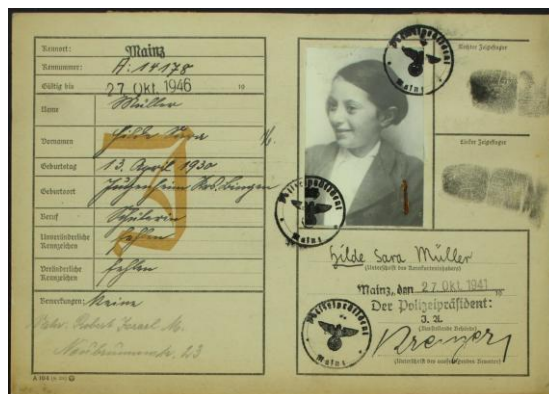 Kennort: Mainz
Kennnummer: A: 14178
Gültig bis 27. Okt. 1946 19
Name Müller
Vornamen Hilde Sara
Geburtstag 13. April 1930
Geburtsort Jugenheim Krs. Bingen
Beruf Schülerin
Unveränderliche Kennzeichen fehlen
Veränderliche Kennzeichen fehlen
Bemerkungen: Keine
Robert Israel M.
23
J
A 104
Polizeipräsident
Mainz
Rechter Zeigefinger
Linker Zeigefinger
Polizeipräsident
Mainz
Hilde Sara Müller
(Unterschrift des Kennkarteninhabers)
Mainz, den 27. Okt. 1941 19
Der Polizeipräsident:
J. A.
(Ausstellende Behörde)
(Unterschrift des ausfertigenden Beamten)
Polizeipräsident
Mainz